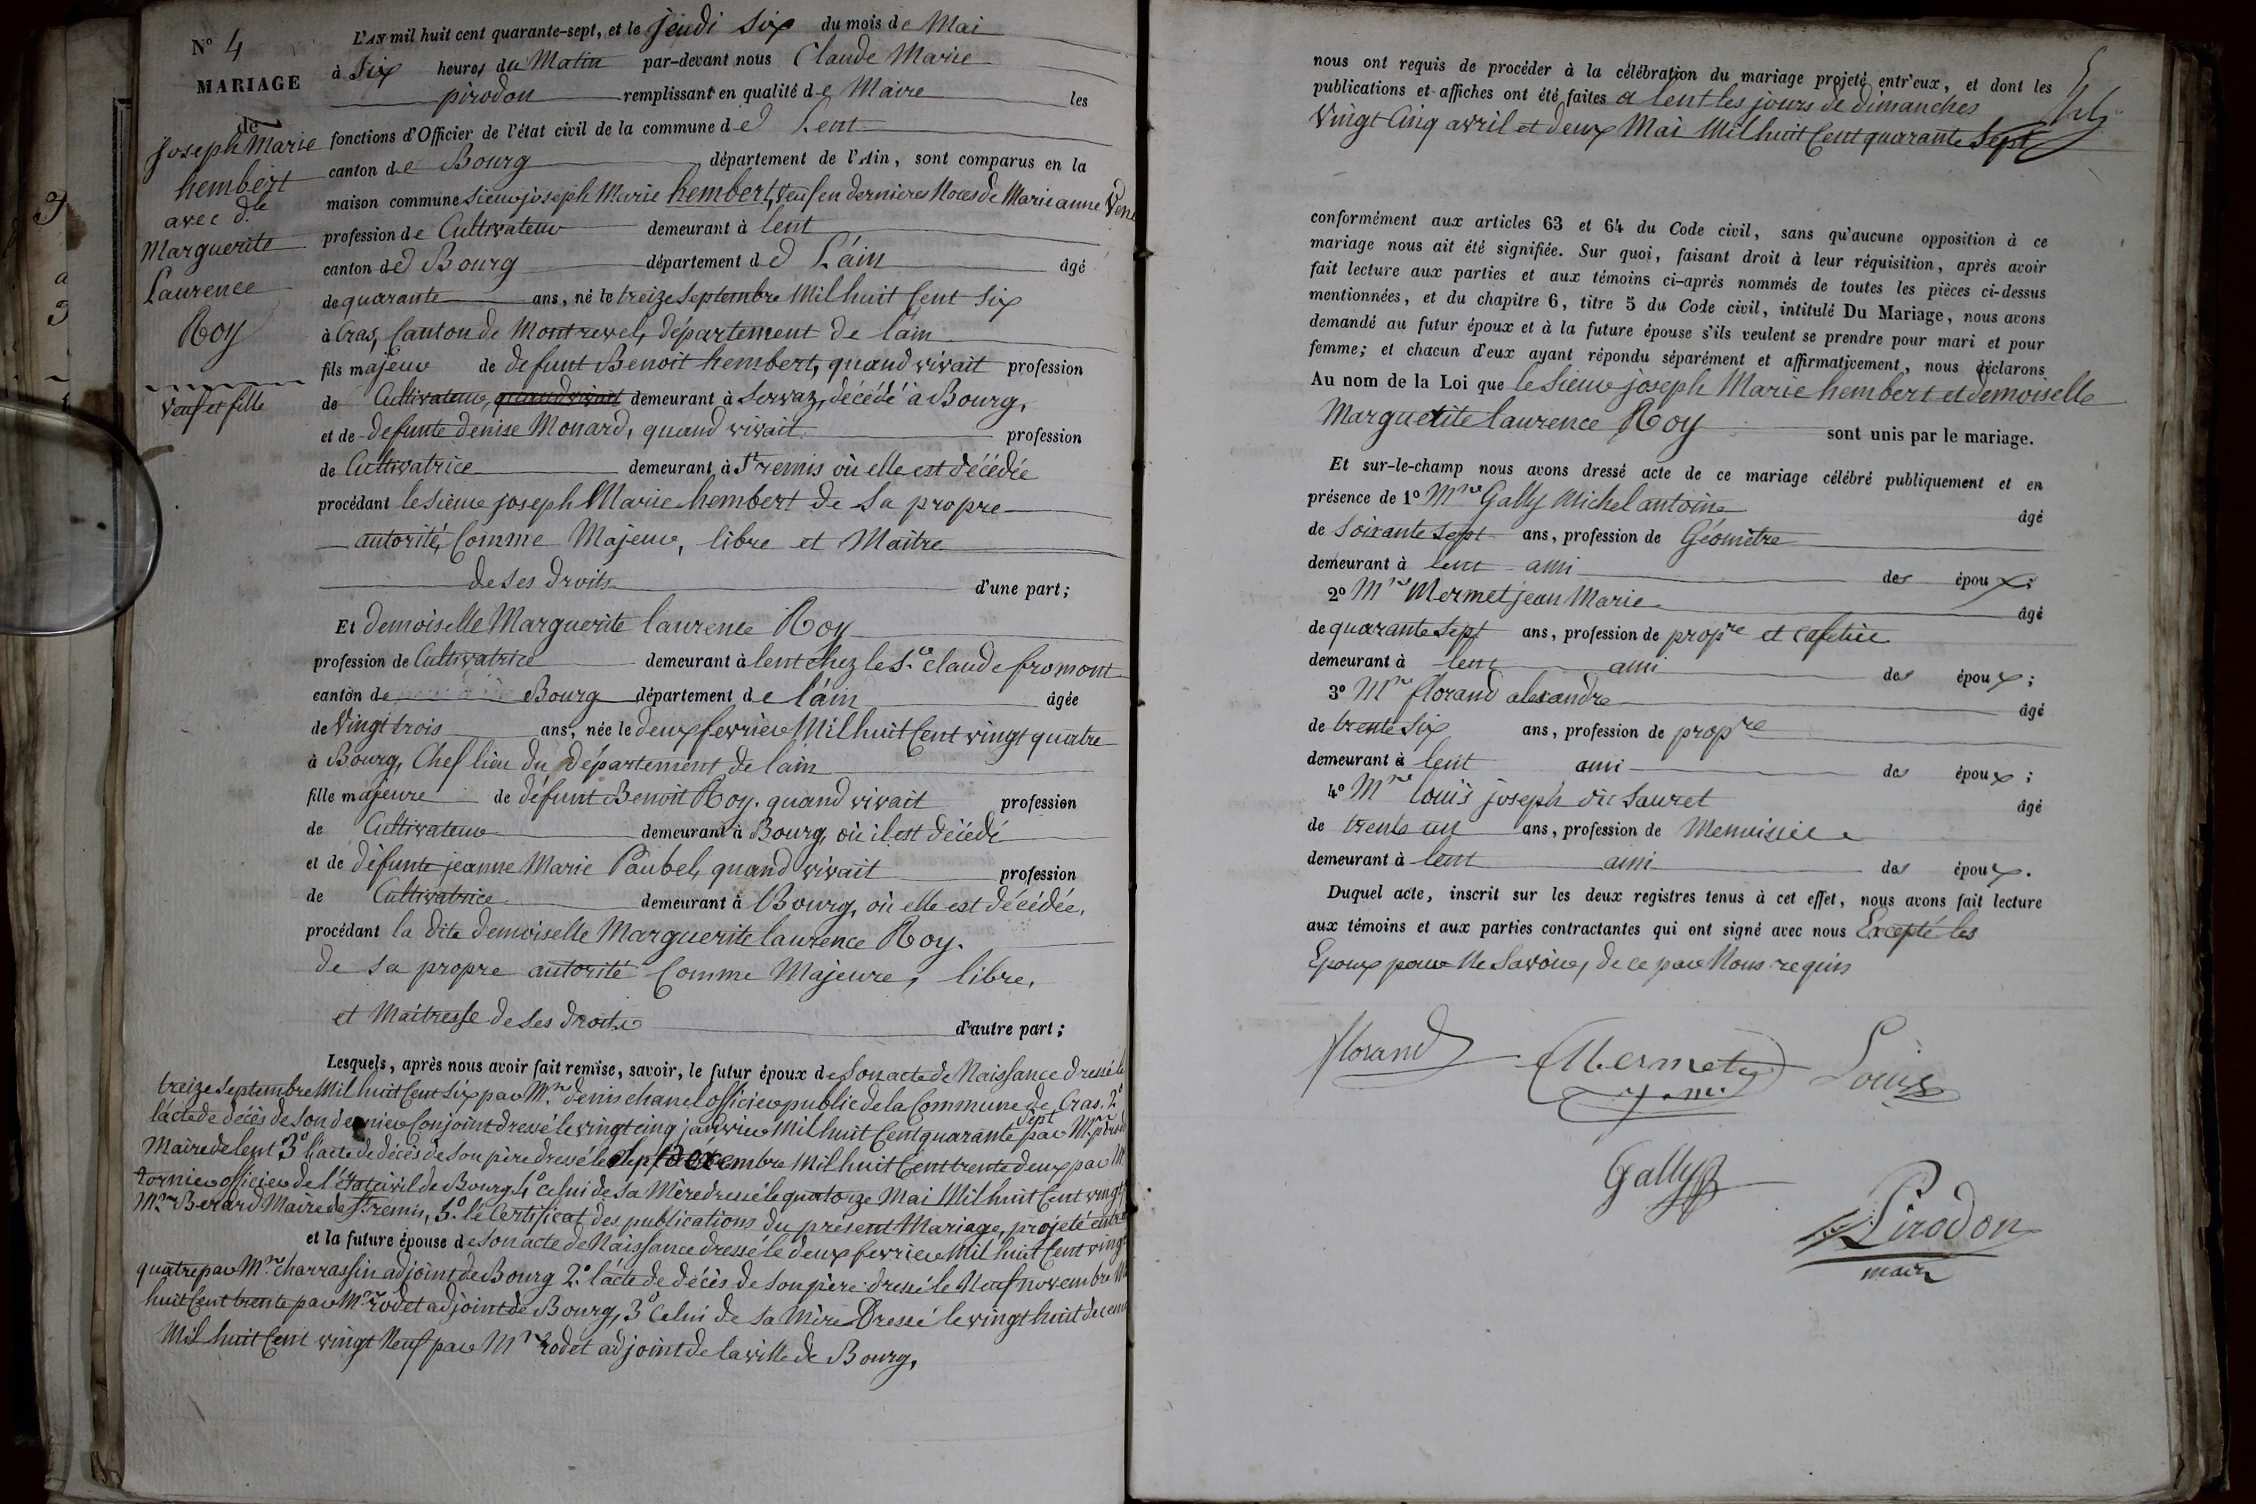 N° 4
MARIAGE
de
Joseph Marie
hembert
avec d.lle
Marguerite
Laurence
Roy
Veuf et fille
L'AN mil huit cent quarante-sept, et le jeudi six du mois de Mai
à Six heures du Matin par-devant nous Claude Marie
pirodon remplissant en qualité de Maire les
fonctions d'Officier de l'état civil de la commune de Lent
canton de Bourg département de l'Ain, sont comparus en la
maison commune Sieur joseph Marie hembert, Veuf en dernieres Noces de Marie anne
profession de Cultivateur demeurant à lent
canton de Bourg département de L'ain âgé
de quarante ans, né le treize Septembre Mil huit Cent Six
à Cras, Canton de Montrevel, département de lain
fils majeur de defunt Benoit hembert, quand vivait profession
de Cultivateur, quand vivait demeurant à Servaz, décédé à Bourg,
et de defunte denise Monard, quand vivait profession
de Cultivatrice demeurant à St remis où elle est décédée
procédant le sieur joseph Marie hembert de Sa propre
autorité, Comme Majeur, libre et Maitre
de ses droits d'une part;
Et demoiselle Marguerite laurence Roy
profession de Cultivatrice demeurant à lent chez le Sr claude fromont
canton de Bourg département de l'ain âgée
de Vingt trois ans, née le deux fevrier Mil huit Cent vingt quatre
à Bourg, Chef lieu du département de lain
fille majeure de défunt Benoit Roy, quand vivait profession
de Cultivateur demeurant à Bourg, où il est décédé
et de défunte jeanne Marie Paubel, quand vivait profession
de Cultivatrice demeurant à Bourg, où elle est décédée,
procédant la dite demoiselle Marguerite laurence Roy.
de sa propre autorité Comme Majeure, libre,
et Maitresse de Ses droits d'autre part;
Lesquels, après nous avoir fait remise, savoir, le futur époux de Son acte de Naissance dressé le
treize Septembre Mil huit Cent Six par Mr. denis chanel officier public de la Commune de Cras. 2°
l'acte de décès de Son dernier Conjoint dressé le vingt cinq janvier Mil huit Cent quarante sept par Mr.
Maire de lent 3° l'acte de décès de Son père dressé le Sept décembre Mil huit Cent trente deux par
tornier officier de l'état civil de Bourg 4° celui de Sa Mère dressé le quatorze Mai Mil huit Cent vingt
Mr. Berard Maire de St remis, 5.° le Certificat des publications du présent Mariage, projeté entre
et la future épouse de Son acte de Naissance dressé le deux fevrier Mil huit Cent vingt
quatre par Mr. charrassin adjoint de Bourg 2.° l'acte de décès de Son père dressé le Neuf novembre
huit Cent trente par Mr. rodet adjoint de Bourg, 3° Celui de Sa Mère Dressé le vingt huit
Mil huit Cent vingt Neuf par Mr rodet adjoint de la ville de Bourg.
nous ont requis de procéder à la célébration du mariage projeté entr'eux, et dont les
publications et affiches ont été faites a lent les jours de dimanches
Vingt Cinq avril et deux Mai Mil huit Cent quarante Sept
conformément aux articles 63 et 64 du Code civil, sans qu'aucune opposition à ce
mariage nous ait été signifiée. Sur quoi, faisant droit à leur réquisition, après avoir
fait lecture aux parties et aux témoins ci-après nommés de toutes les pièces ci-dessus
mentionnées, et du chapitre 6, titre 5 du Code civil, intitulé Du Mariage, nous avons
demandé au futur époux et à la future épouse s'ils veulent se prendre pour mari et pour
femme; et chacun d'eux ayant répondu séparément et affirmativement, nous déclarons
Au nom de la Loi que le Sieur joseph Marie hembert et demoiselle
Marguerite laurence Roy sont unis par le mariage.
Et sur-le-champ nous avons dressé acte de ce mariage célébré publiquement et en
présence de 1° Mr Gally Michel antoine âgé
de Soixante Sept ans, profession de Géomètre
demeurant à lent ami des époux;
2° Mr Mermet jean Marie âgé
de quarante Sept ans, profession de propre et cafetier
demeurant à lent ami des époux;
3° Mr florand alexandre âgé
de trente Six ans, profession de propre
demeurant à lent ami des époux;
4° Mr louis joseph dit Sauret âgé
de trente un ans, profession de Menuisier
demeurant à lent ami des époux.
Duquel acte, inscrit sur les deux registres tenus à cet effet, nous avons fait lecture
aux témoins et aux parties contractantes qui ont signé avec nous Excepté les
Epoux pour Ne Savoir, de ce par Nous requis
florand Mermet j. m. Louis
Gally
Pirodon
maire